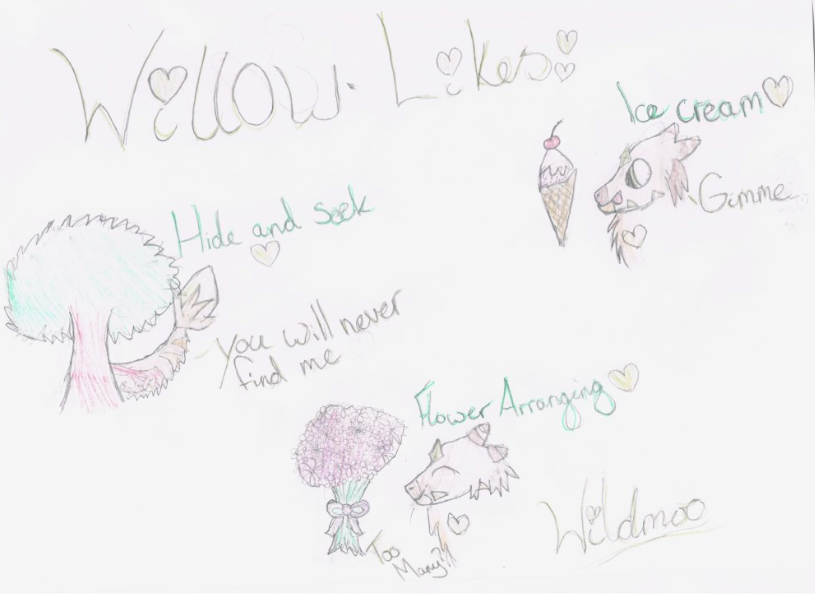 Willow. Likes:
Ice cream
Gimme
Hide and seek
You will never
find me
Flower Arranging
Too
Many?!
Wildmoo